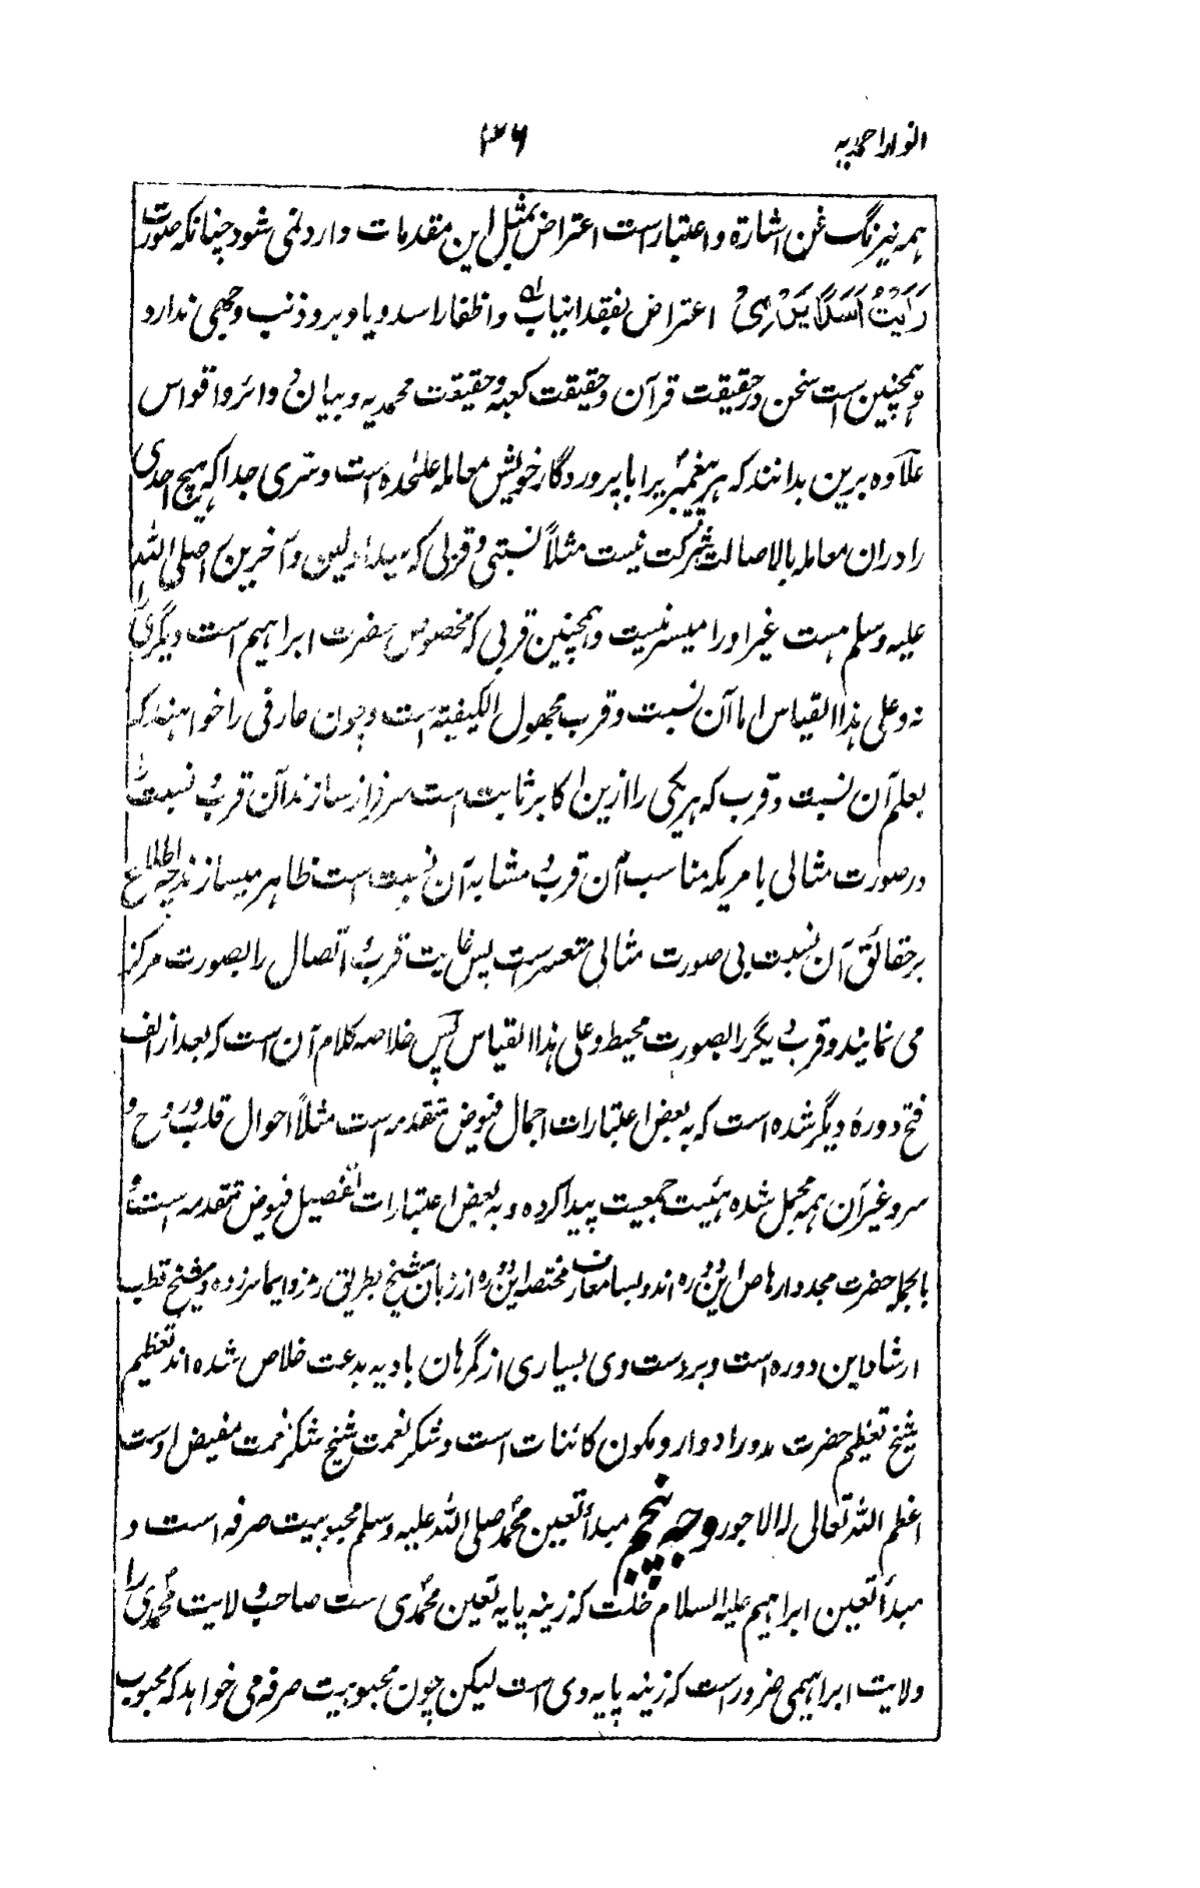 انوار احمدیه
۳۶
همه نیرنگ فن اشارة و اعتبار است اعتراض بمثل این مقدمات وارد نمی شود چنانکه صورت
رَأَیْتُ اَسَدًا یَرْمِیْ اعتراض بفقد انیاب و اظفار اسد و یا و بر و ذنب وجهی ندارد
و همچنین است سخن در حقیقت قرآن و حقیقت کعبه و حقیقت محمدیه و بیان دوائر و اقواس
علاوه برین بدانند که هر پیغمبری را با پروردگار خویش معامله علیحده است و سری جدا که هیچ احدی
را دران معامله بالاصالت شرکت نیست مثلاً نسبتی و قربی که سید اولین و آخرین را صلی الله
علیه وسلم هست غیر او را میسر نیست و همچنین قربی که مخصوص حضرت ابراهیم است دیگری را
نه و علی هذا القیاس اما آن نسبت و قرب مجهول الکیفیة است و چون عارفی را خواهند که
بعلم آن نسبت و قرب که هر یکی را ازین اکابر ثابت است سرفراز سازند آن قرب و نسبت را
در صورت مثالی بامریکه مناسب آن قرب و مشابه آن نسبت است ظاهر میسازند چه اطلاع
بر حقائق آن نسبت بی صورت مثالی متعسر است پس غایت قرب و اتصال را بصورت مرکز
می نمایند و قرب دیگر را بصورت محیط و علی هذا القیاس پس خلاصه کلام آن است که بعد از الف
فتح دورهٔ دیگر شده است که به بعض اعتبارات اجمال فیوض متقدمه است مثلاً احوال قلب و روح و
سر و غیر آن همه مجمل شده هیئت جمعیت پیدا کرده و به بعض اعتبارات تفصیل فیوض متقدمه است و
بالجمله حضرت مجدد ارهاص این دوره اند و بسا معارف مختصه این دوره از زبان شیخ بطریق رمز و ایما سر زده و شیخ قطب
ارشاد این دوره است و بر دست وی بسیاری از گمرهان بادیه بدعت خلاص شده اند تعظیم
شیخ تعظیم حضرت مدور ادوار و مکون کائنات است و شکر نعمت شیخ شکر نعمت مفیض اوست
اعظم الله تعالی له الاجور وجه پنجم مبدأ تعین محمد صلی الله علیه وسلم محبوبیت صرفه است و
مبدأ تعین ابراهیم علیه السلام خلت که زینه پایه تعین محمدی ست صاحب ولایت محمدی را
ولایت ابراهیمی ضرور است که زینه پایه وی است لیکن چون محبوبیت صرفه می خواهد که محبوب